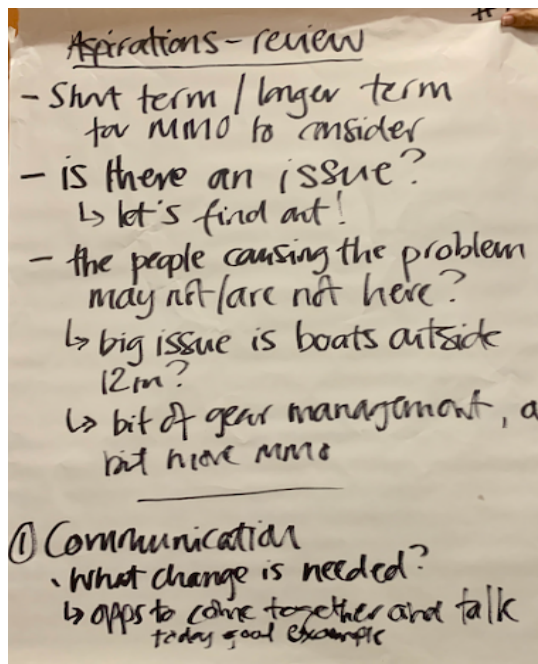 Aspirations - review
- Short term / longer term
for MMO to consider
- is there an issue?
↳ let's find out!
- the people causing the problem
may not/are not here?
↳ big issue is boats outside
12m?
↳ bit of gear management, a
bit more MMO
① Communication
• What change is needed?
↳ opps to come together and talk
today good example